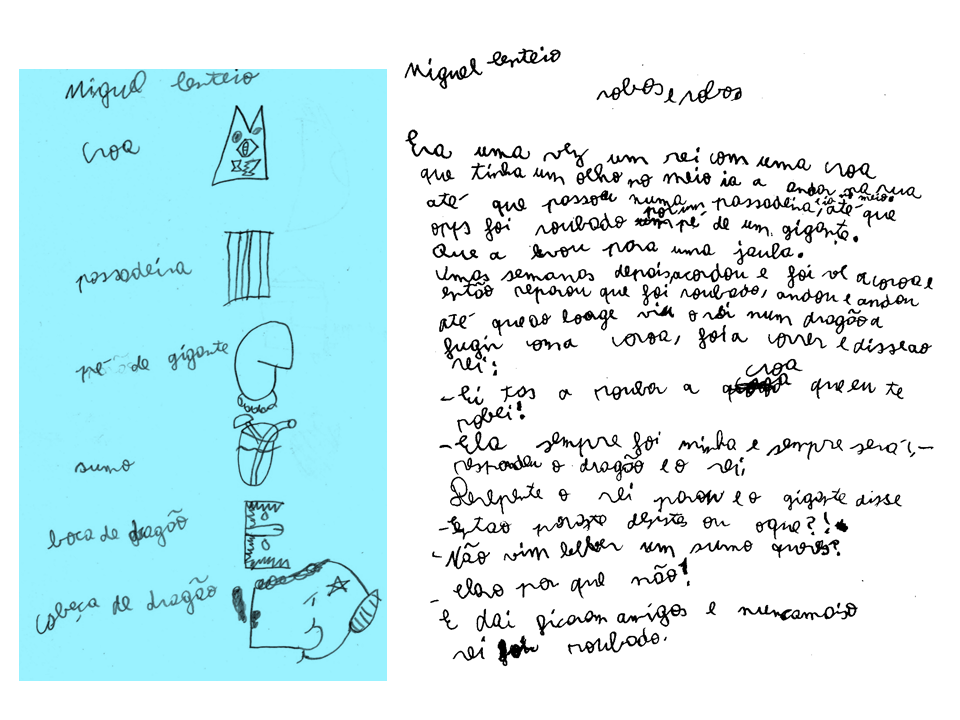 Miguel Centeio
croa
passadeira
pé de gigante
sumo
boca de dragão
cabeça de dragão
Miguel Centeio
robos e robos
Era uma vez um rei com uma croa
que tinha um olho no meio ia a andar na rua
até que passou numa passadeira, ia no meio, até que
orps foi roubado por um pé de um gigante.
Que a levou para uma jaula.
Umas semanas depois, acordou e foi ve a coroa e
então reparou que foi roubado, andou e andou
até que ao loage viu o rei num dragão a
fugir coma coroa, foi a correr e disse ao
rei:
- Ei tas a roubar a croa que eu te
robei!
- Ela sempre foi minha e sempre será!, -
respondeu o dragão e o rei,
Derepente o rei parou e o gigante disse
- Entao paraste desistes ou oque?!
- Não vim beber um sumo queres?
- claro por que não!
E dai ficaram amigos e nuncamais o
rei foi roubado.